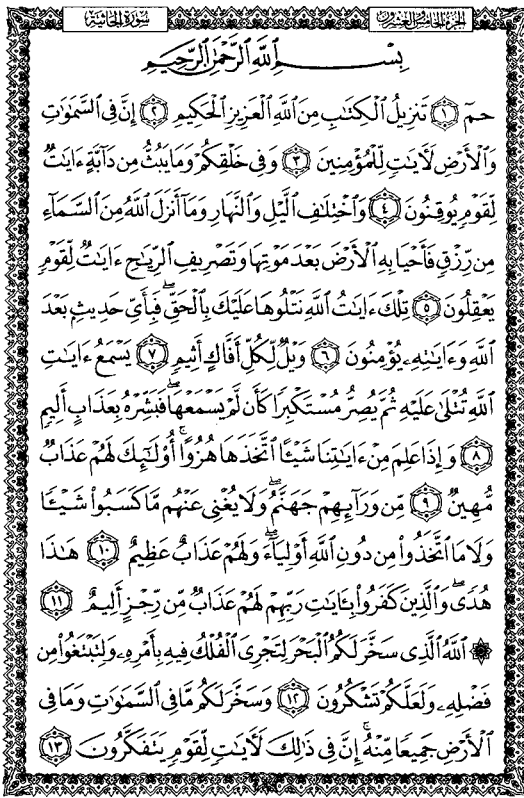 الجزء الخامس والعشرون
سورة الجاثية
بِسْمِ ٱللَّهِ ٱلرَّحْمَٰنِ ٱلرَّحِيمِ
حمٓ ١ تَنزِيلُ ٱلْكِتَٰبِ مِنَ ٱللَّهِ ٱلْعَزِيزِ ٱلْحَكِيمِ ٢ إِنَّ فِى ٱلسَّمَٰوَٰتِ
وَٱلْأَرْضِ لَءَايَٰتٍ لِّلْمُؤْمِنِينَ ٣ وَفِى خَلْقِكُمْ وَمَا يَبُثُّ مِن دَآبَّةٍ ءَايَٰتٌ
لِّقَوْمٍ يُوقِنُونَ ٤ وَٱخْتِلَٰفِ ٱلَّيْلِ وَٱلنَّهَارِ وَمَآ أَنزَلَ ٱللَّهُ مِنَ ٱلسَّمَآءِ
مِن رِّزْقٍ فَأَحْيَا بِهِ ٱلْأَرْضَ بَعْدَ مَوْتِهَا وَتَصْرِيفِ ٱلرِّيَٰحِ ءَايَٰتٌ لِّقَوْمٍ
يَعْقِلُونَ ٥ تِلْكَ ءَايَٰتُ ٱللَّهِ نَتْلُوهَا عَلَيْكَ بِٱلْحَقِّ ۖ فَبِأَىِّ حَدِيثٍۭ بَعْدَ
ٱللَّهِ وَءَايَٰتِهِۦ يُؤْمِنُونَ ٦ وَيْلٌ لِّكُلِّ أَفَّاكٍ أَثِيمٍ ٧ يَسْمَعُ ءَايَٰتِ
ٱللَّهِ تُتْلَىٰ عَلَيْهِ ثُمَّ يُصِرُّ مُسْتَكْبِرًا كَأَن لَّمْ يَسْمَعْهَا ۖ فَبَشِّرْهُ بِعَذَابٍ أَلِيمٍ
٨ وَإِذَا عَلِمَ مِنْ ءَايَٰتِنَا شَيْـًٔا ٱتَّخَذَهَا هُزُوًا ۚ أُو۟لَٰٓئِكَ لَهُمْ عَذَابٌ
مُّهِينٌ ٩ مِّن وَرَآئِهِمْ جَهَنَّمُ ۖ وَلَا يُغْنِى عَنْهُم مَّا كَسَبُوا۟ شَيْـًٔا
وَلَا مَا ٱتَّخَذُوا۟ مِن دُونِ ٱللَّهِ أَوْلِيَآءَ ۖ وَلَهُمْ عَذَابٌ عَظِيمٌ ١٠ هَٰذَا
هُدًى ۖ وَٱلَّذِينَ كَفَرُوا۟ بِـَٔايَٰتِ رَبِّهِمْ لَهُمْ عَذَابٌ مِّن رِّجْزٍ أَلِيمٌ ١١
۞ ٱللَّهُ ٱلَّذِى سَخَّرَ لَكُمُ ٱلْبَحْرَ لِتَجْرِىَ ٱلْفُلْكُ فِيهِ بِأَمْرِهِۦ وَلِتَبْتَغُوا۟ مِن
فَضْلِهِۦ وَلَعَلَّكُمْ تَشْكُرُونَ ١٢ وَسَخَّرَ لَكُم مَّا فِى ٱلسَّمَٰوَٰتِ وَمَا فِى
ٱلْأَرْضِ جَمِيعًا مِّنْهُ ۚ إِنَّ فِى ذَٰلِكَ لَءَايَٰتٍ لِّقَوْمٍ يَتَفَكَّرُونَ ١٣